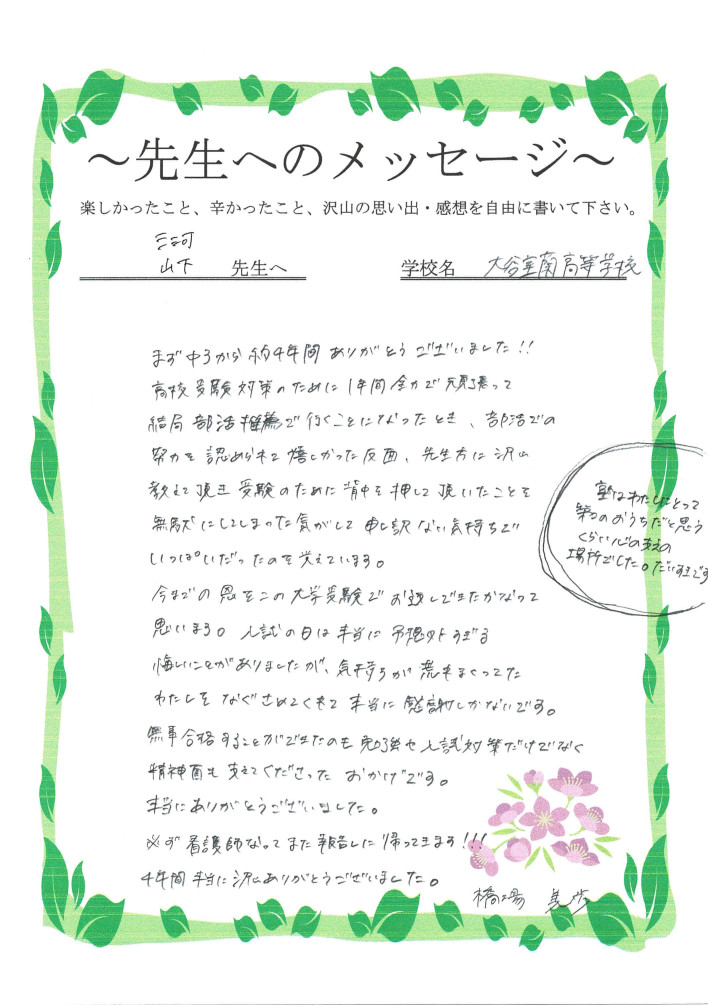 ～先生へのメッセージ～
楽しかったこと、辛かったこと、沢山の思い出・感想を自由に書いて下さい。
三河
山下 先生へ
学校名 大谷室蘭高等学校
まず中3から約4年間ありがとうございました!!
高校受験対策のために1年間全力で頑張って
結局部活推薦で行くことになったとき、部活での
努力を認められて嬉しかった反面、先生方に沢山
教えて頂き受験のために背中を押して頂いたことを
無駄にしてしまった気がして申し訳ない気持ちで
いっぱいだったのを覚えています。
今までの恩をこの大学受験でお返しできたかなって
思います。入試の日は本当に予想外すぎる
悔しいことがありましたが、気持ちが荒れまくってた
わたしをなぐさめてくれて本当に感謝しかないです。
無事合格することができたのも勉強や入試対策だけでなく
精神面も支えてくださったおかげです。
本当にありがとうございました。
必ず看護師なってまた報告しに帰ってきます!!!
4年間本当に沢山ありがとうございました。
橋場 美歩
塾はわたしにとって
第2のおうちだと思う
くらい心の支えの
場所でした。だいすきです